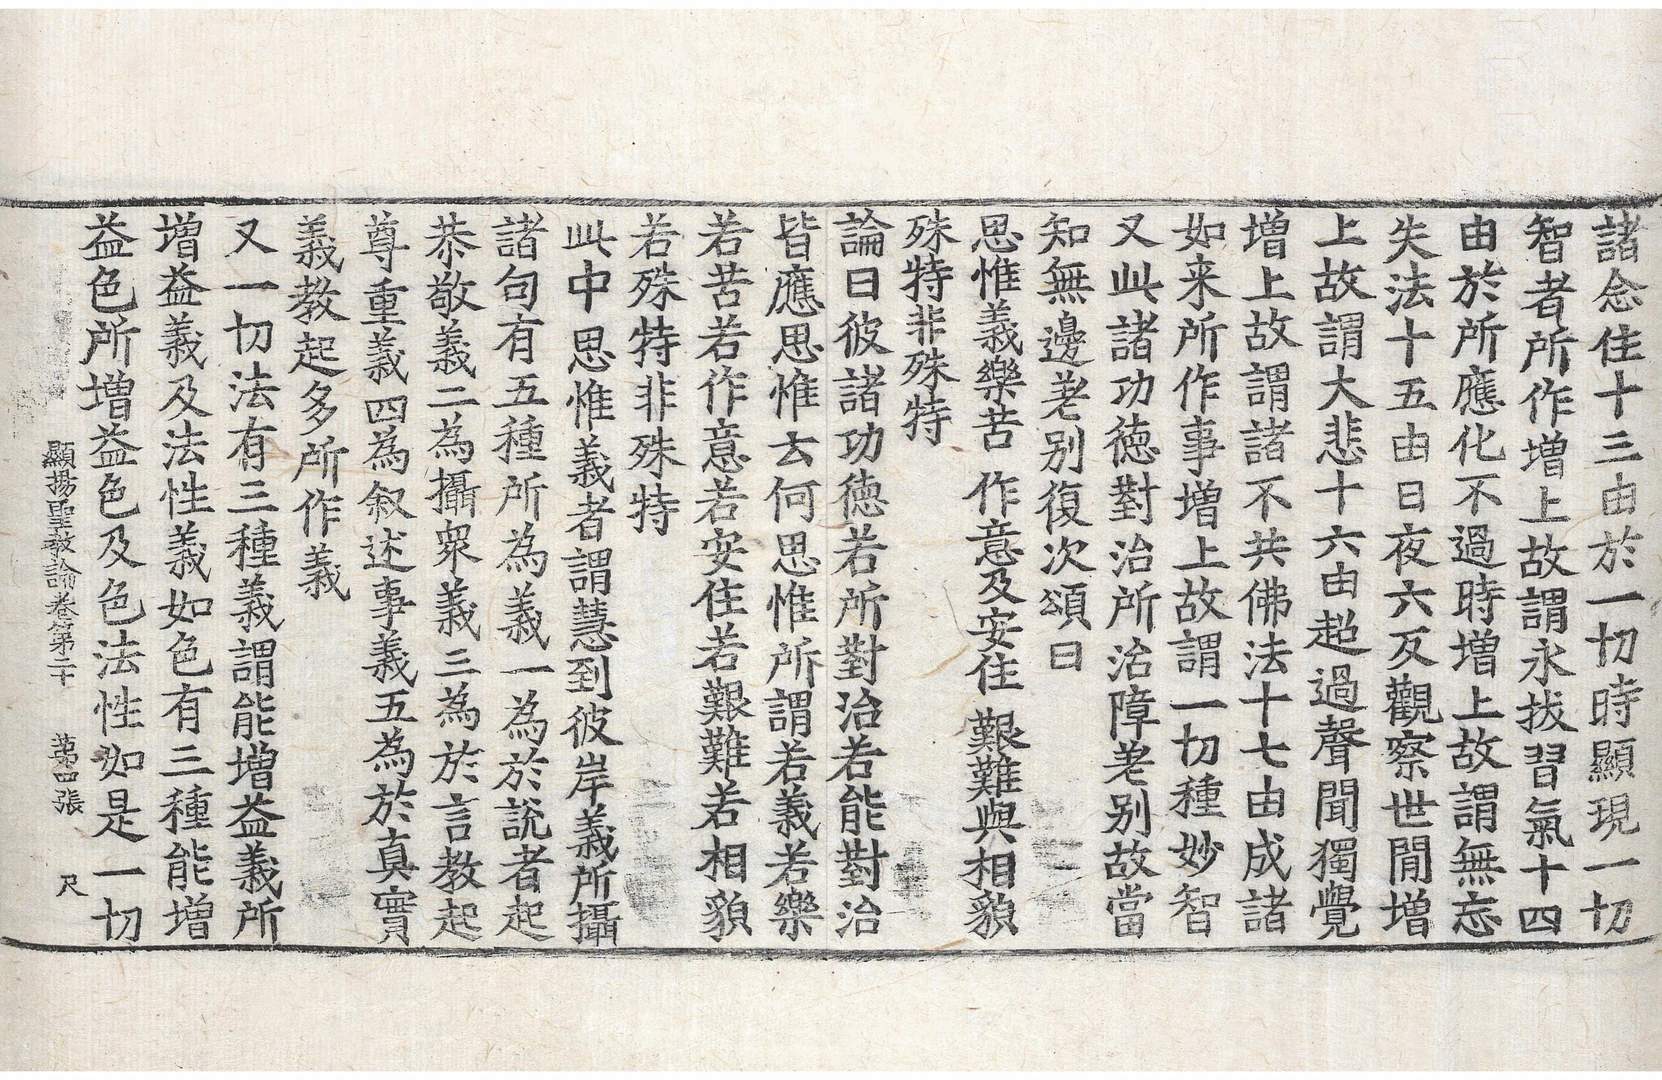 諸念住十三由於一切時顯現一切
智者所作增上故謂永拔習氣十四
由於所應化不過時增上故謂無忘
失法十五由日夜六反觀察世間增
上故謂大悲十六由超過聲聞獨覺
增上故謂諸不共佛法十七由成諸
如来所作事增上故謂一切種妙智
又此諸功德對治所治障差别故當
知無邊差别復次頌曰
思惟義樂苦 作意及安住 艱難與相貌
殊特非殊特
論曰彼諸功德若所對治若能對治
皆應思惟云何思惟所謂若義若樂
若苦若作意若安住若艱難若相貌
若殊特非殊特
此中思惟義者謂慧到彼岸義所攝
諸句有五種所為義一為於說者起
恭敬義二為攝衆義三為於言教起
尊重義四為叙述事義五為於真實
義教起多所作義
又一切法有三種義謂能增益義所
增益義及法性義如色有三種能增
益色所增益色及色法性如是一切
顯揚聖教論卷第二十 第四張 尺